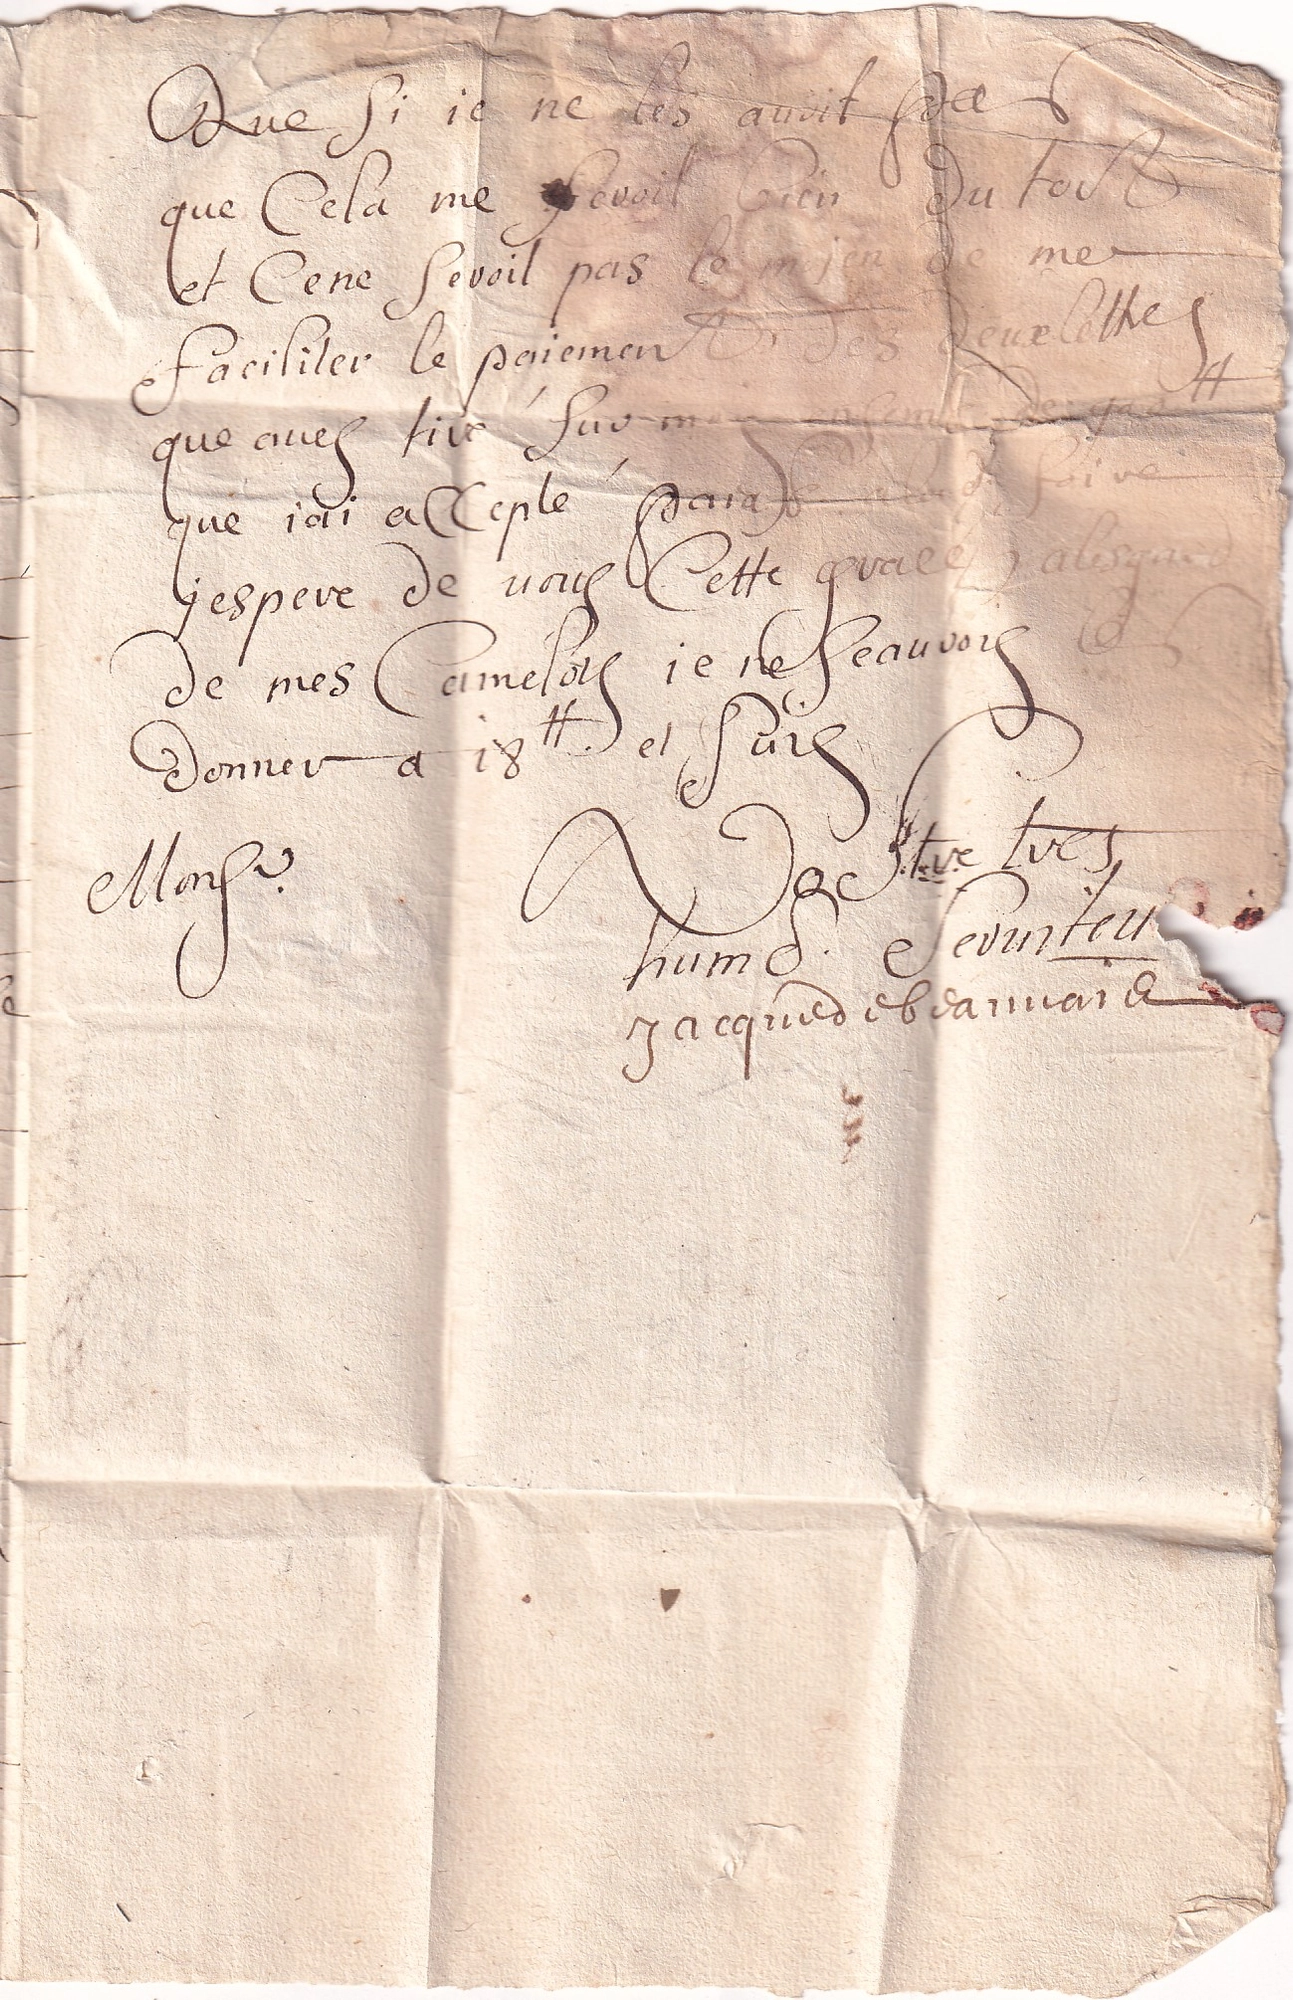 Que si ie ne les avoit pas
que Cela me feroit bien du tord
et Cene seroit pas le moien de me
faciliter le paiement des deux lettres
que aues tiré sur moy de
que iai accepté faire
jespere de vous Cette grace a lesgard
de mes Camelots ie ne seauvois
donner a 18 ₶ et suis
Monsr.
Vostre tres
humb. Serviteu
Jacque debeauvais